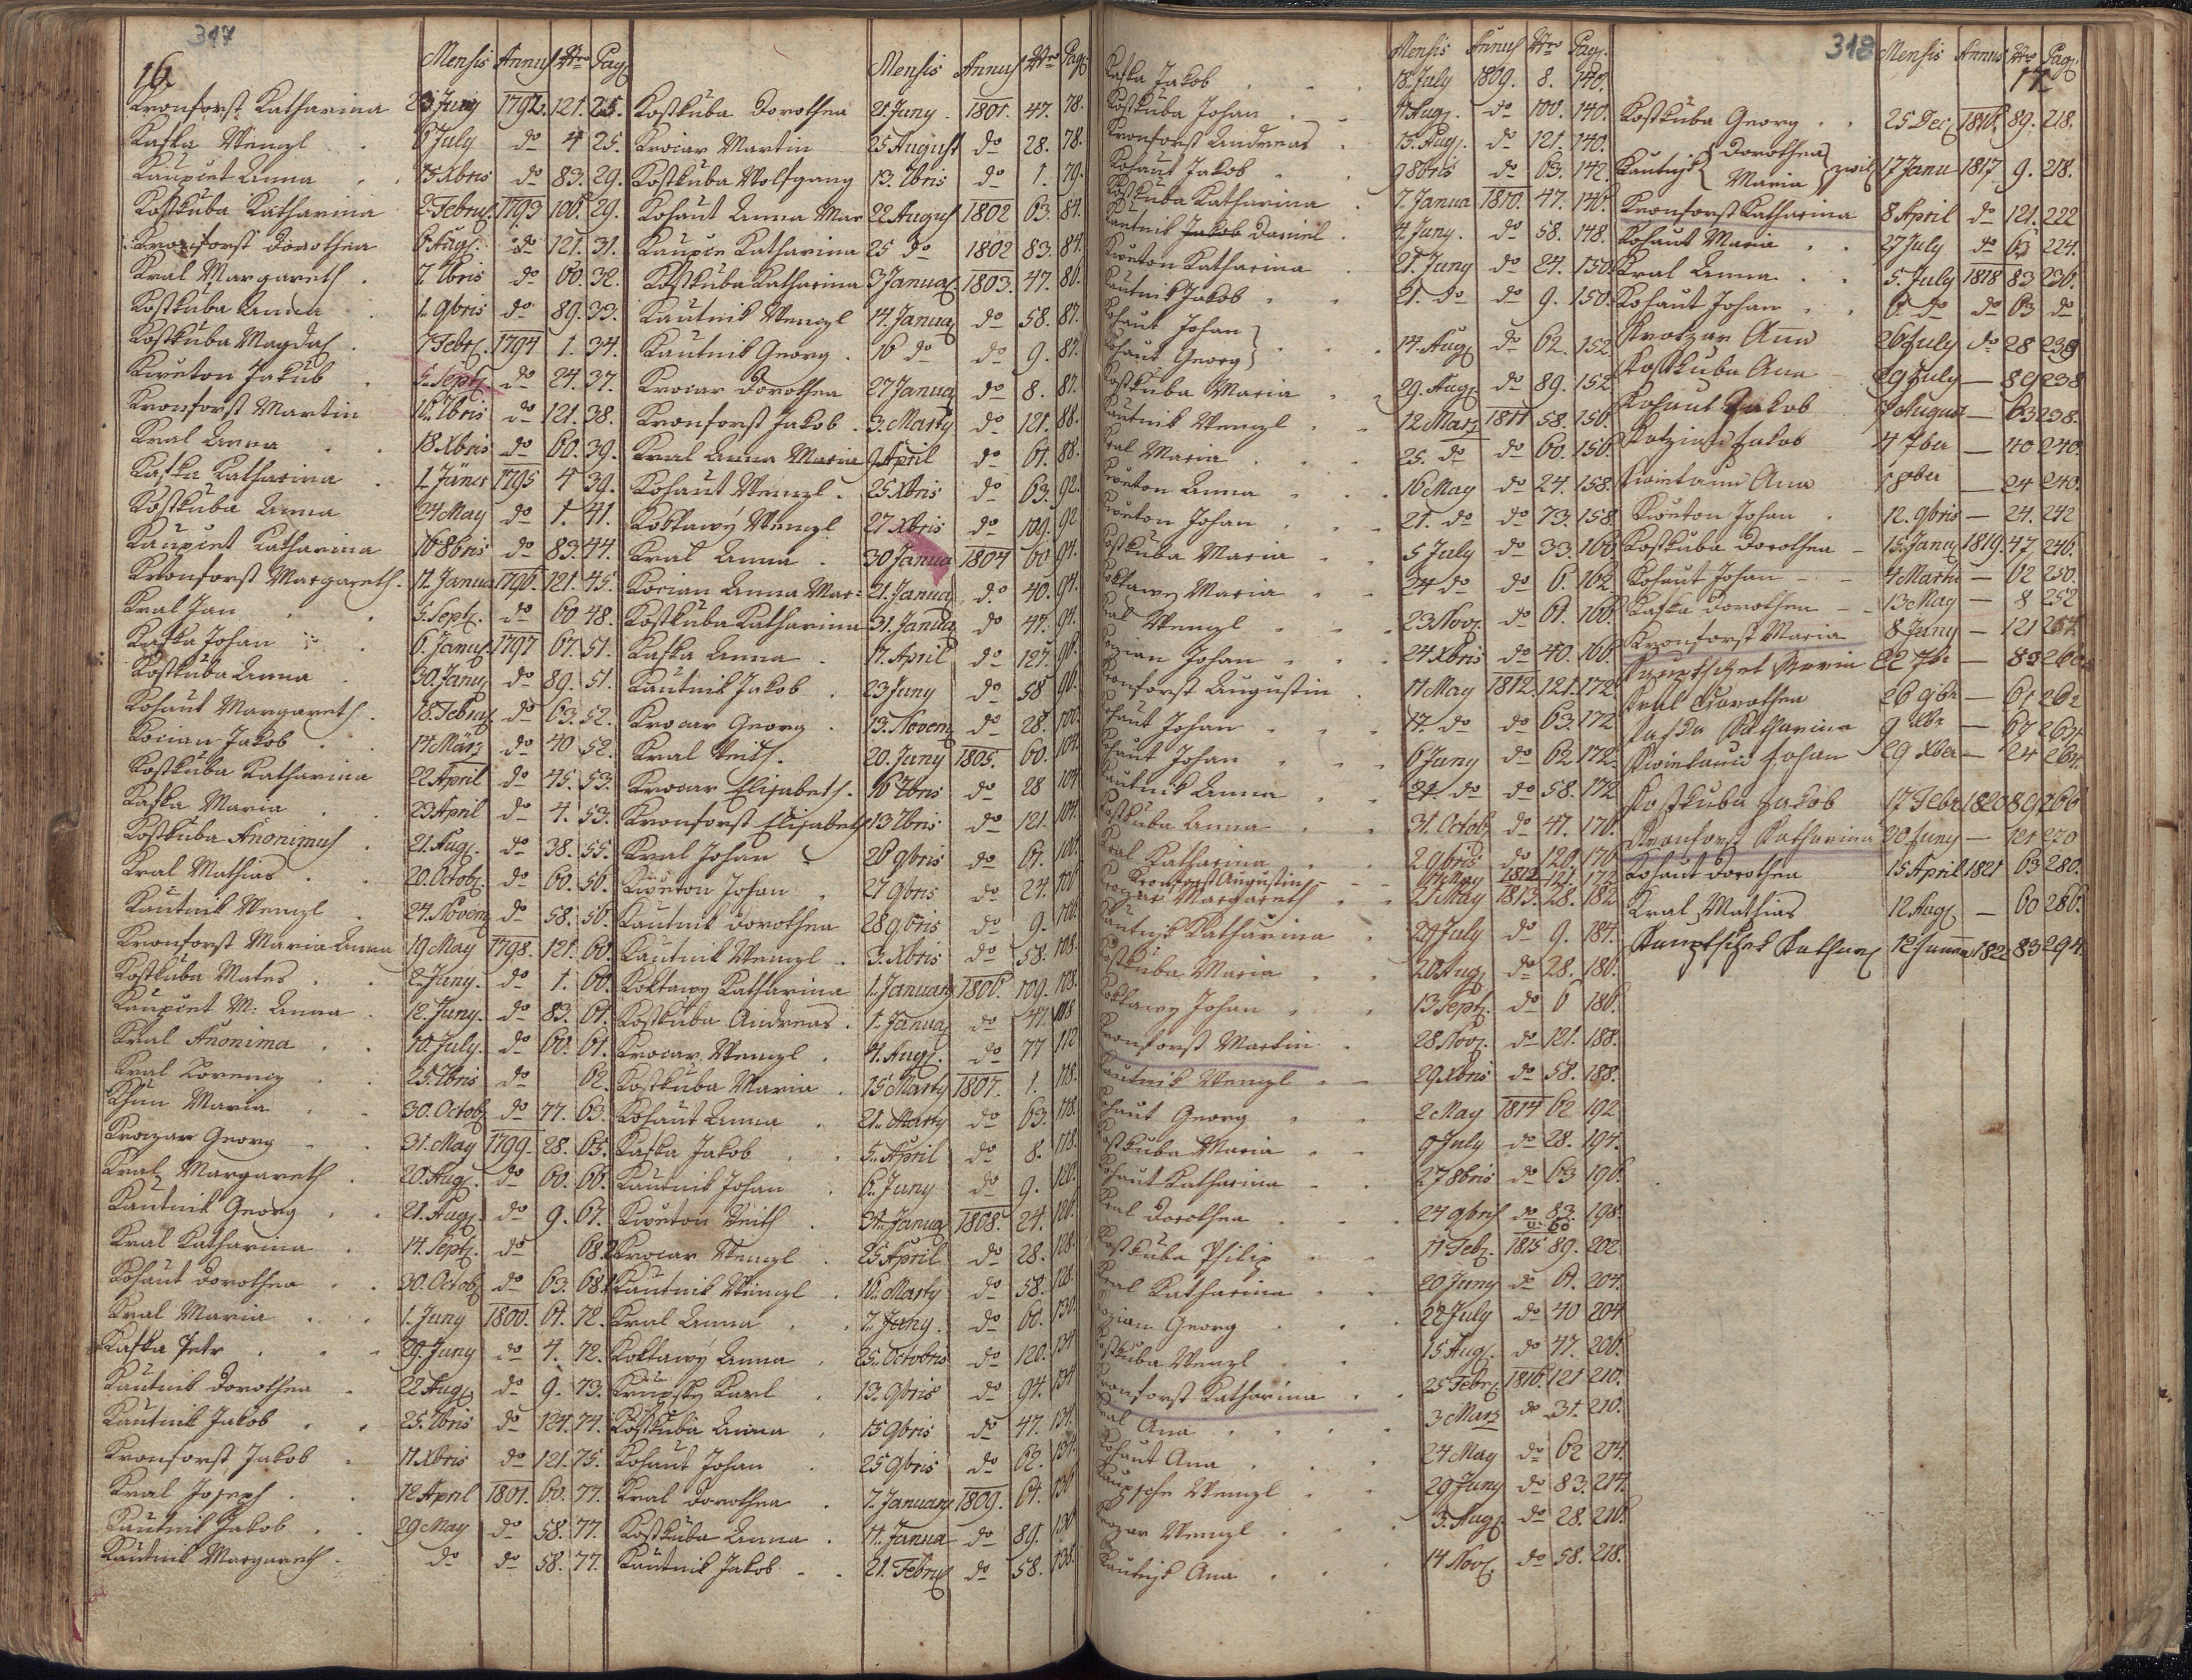 317
16.
Mensis Annus Nro Pag.
Kronforst Katharina 23 Juny 1792. 121. 25.
Kafka Wenzl 6 July do 4 25.
Kaupiet Anna 15 Xbris do 83. 29.
Kostkuba Katharina 2 Febru. 1793 100. 29.
Kronforst Dorothea 6 Aug. do 121. 31.
Kral Margareth 7. 7bris do 60. 32.
Kostkuba Anna 1. 9bris do 89. 33.
Kostkuba Magda. 7 Febr. 1794 1. 34.
Kweton Jakub 5. Sept. do 24. 37.
Kronforst Martin 10. 7bris do 121. 38.
Kral Anna 18 Xbris do 60. 39.
Kafka Katharina 1. Jäner 1795 4 39.
Kostkuba Anna 24 May do 1. 41.
Kaupiet Katharina 10 8bris do 83. 44.
Kronforst Margareth. 11. Janua 1796. 121. 45.
Kral Jan 5. Sept. do 60 48.
Kafka Johan 6. Janu. 1797 67. 51.
Kostkuba Anna 30. Janu. do 89. 51.
Kohaut Margareth. 18. Febru. do 63. 52.
Kocian Jakob 14 März do 40 52.
Kostkuba Katharina 22 April do 45. 53.
Kafka Maria 23 April do 4. 53.
Kostkuba Anonimus 21 Aug. do 38. 55.
Kral Mathias 20. Octob. do 60. 56.
Kautnik Wenzl 24. Novem. do 58. 56.
Kronforst Maria Anna 19 May 1798. 121. 60.
Kostkuba Mates 2. Juny. do 1. 60.
Kaupiet M: Anna 12. Juny. do 83. 61.
Kral Anonima 10. July. do 60. 61.
Kral Lorenz 25. 7bris do 62.
Khun Maria 30. Octob. do 77. 63.
Kroczar Georg 31. May 1799. 28. 65.
Kral Margareth 20. Aug. do 60. 66.
Kautnik Georg 21. Aug. do 9. 67.
Kral Katharina 14. Sept. do 68.
Kohaut Dorothea 30. Octob. do 63. 68.
Kral Maria 1. Juny 1800. 61. 72.
Kafka Petr 29. Juny do 4. 72.
Kautnik Dorothea 22 Aug. do 9. 73.
Kautnik Jakob 25. 7bris do 124. 74.
Kronforst Jakob 11 Xbris do 121. 75.
Kral Joseph 12 April 1801. 60. 77.
Kautnik Jakob 29 May do 58. 77.
Kautnik Margareth do do 58. 77.
Mensis Annus Nro Pag.
Kostkuba Dorothea 21. Juny 1801. 47. 78.
Krocar Martin 25 August do 28. 78.
Kostkuba Wolfgang 13. 7bris do 1. 79.
Kohaut Anna Mar 22 Augus. 1802 63. 84.
Kaupie Katharina 25 do 1802 83. 84.
Kostkuba Katharina 3 Janua. 1803. 47. 86.
Kautnik Wenzl 14. Janua. do 58. 87.
Kautnik Georg 16 do do 9. 87.
Krocar Dorothea 27 Janua. do 8. 87.
Kronforst Jakob 3. Marty do 121. 88.
Kral Anna Maria 9 April do 61. 88.
Kohaut Wenzl 25 Xbris do 63. 92.
Koktawy Wenzl 27 Xbris do 109. 92
Kral Anna 30 Janua 1804 60 94.
Korian Anna Mar: 21. Janua. do 40. 94.
Kostkuba Katharina 31. Janua. do 47. 94.
Kafka Anna 17. April do 127. 98.
Kautnik Jakob 23 Juny do 58 98.
Krocar Georg 13. Novem. do 28. 100.
Kral Veith 20. Juny 1805. 60. 104.
Krocar Elisabeth 16 7bris do 28 104
Kronforst Elisabeth 13 7bris do 121. 104.
Kral Johan 26 9bris do 61. 106.
Kweton Johan 27 9bris do 24. 106
Kautnik Dorothea 28 9bris do 9. 106.
Kautnik Wenzl 3. Xbris do 58. 108.
Koktawy Katharina 1. January 1806. 109. 108.
Kostkuba Andreas 1. Janua. do 47. 108
Krocar Wenzl 4. Aug. do 77 112
Kostkuba Maria 15 Marty 1807. 1. 118.
Kohaut Anna 21. Marty do 63. 118.
Kafka Jakob 5. April do 8. 118.
Kautnik Johan 6. Juny do 9. 120.
Kweton Veith 31. Janua. 1808. 24. 126.
Krocar Wenzl 25 April do 28. 128.
Kautnik Wenzl 16. Marty do 58. 128.
Kral Anna 7. Juny do 60. 130.
Koktawy Anna 25. Octobris do 120. 134
Krupsky Karl 13. 9bris do 94. 134
Kostkuba Anna 15 9bris do 47. 134.
Kohaut Johan 25 9bris do 62. 134.
Kral Dorothea 7. January 1809. 61. 136
Kostkuba Anna 11. Janua do 89. 136
Kautnik Jakob 21. Febru. do 58. 138.
Mensis Annus Nro Pag.
Kafka Jakob 18. July 1809. 8. 140.
Kostkuba Johan 11 Aug. do 100. 140.
Kronforst Andreas 15. Aug. do 121. 140.
Kohaut Jakob 9 8bris do 63. 142.
Kostkuba Katharina 7. Janua 1810. 47. 146.
Kautnik Jakob Daniel 4. Juny. do 58. 148.
Kweton Katharina 21. Juny do 24. 150.
Kautnik Jakob 21. do do 9. 150.
Kohaut Johan
Kohaut Georg 14. Aug. do 62. 152
Kostkuba Maria 29. Aug. do 89. 152
Kautnik Wenzl 12 Marz 1811 58. 156.
Kral Maria 25. do do 60. 156.
Kweton Anna 16 May do 24. 158.
Kweton Johan 21. do do 73. 158
Kostkuba Maria 5 July do 33. 160
Koktawy Maria 24 do do 6. 162
Kral Wenzl 23 Nov. do 61. 166.
Kozian Johan 24 Xbris do 40. 166.
Kronforst Augustin 11 May 1812. 121. 172.
Kohaut Johan 17. do do 63. 172
Kohaut Johan 6 Juny do 62 172.
Kautnik Anna 21. do do 58. 172
Kostkuba Anna 31. Octob. do 47. 176.
Kral Katharina 2 9bris do 120. 176.
Kronforst Augustin 11 May 1812 121. 172
Kroczar Margareth 21 May 1813. 28. 182
Kautnik Katharina 24 July do 9. 184.
Kostkuba Maria 20 Aug. do 28. 186.
Koktawy Johan 13 Sept. do 6 186.
Kronforst Martin 28 Nov. do 121. 188.
Kautnik Wenzl 29 Xbris do 58. 188.
Kohaut Georg 2 May 1814 62 192.
Kostkuba Maria 9 July do 28. 194.
Kohaut Katharina 27 8bris do 63 196.
Kral Dorothea 24 9bris do 83. 198.
60
Kostkuba Philip 11 Feb. 1815 89. 202.
Kral Katharina 20 Juny do 61. 204.
Kozian Georg 22 July do 40 204
Kostkuba Wenzl 15 Aug. do 47. 206.
Kronforst Katharina 25 Febr. 1816. 121 210.
Kral Ana 3 Marz do 31. 210.
Kohaut Ana 24 May do 62 214.
Kaupsche Wenzl 29 Juny do 83. 214.
Kroczar Wenzl 3. Aug. do 28. 216.
Kautnik Ana 14 Nov. do 58. 218.
318
17
Mensis Annus Nro Pag.
Kostkuba Georg 25 Dec. 1816. 89. 218.
Kautnik Dorothea Maria zwil. 17 Janu 1817 9. 218.
Kronforst Katharina 8 April do 121. 222
Kohaut Maria 27 July do 63 224.
Kral Anna 5. July 1818 83 236.
Kohaut Johan 6. do do 63 do
Kroczar Ana 26 July do 28 238
Kostkuba Ana 29 July — 89 238
Kohaut Jakob 7 August — 63 238.
Kotzian Jakob 4 7ber — 40 240.
Kwietaun Ana 1 8ber — 24 240.
Kweton Johan 12. 9bris — 24. 242
Kostkuba Dorothea 15. Janu. 1819. 47 246.
Kohaut Johan 4 Martii — 62 250.
Kafka Dorothea 13 May — 8 252
Kronforst Maria 8 Juny — 121 254
Kauptschet Maria 22 7br — 83 260
Kral Dorothea 26 9br — 61 262
Kafka Katharina 9 Xbr — 67 264
Kwietaun Johan 29 Xber — 24 264.
Kostkuba Jakob 17 Febr 1820 89 266
Kronforst Katharina 20 Juny — 121 270
Kohaut Dorothea 15 April 1821 63 280.
Kral Mathias 12 Aug. — 60 286.
Kauptschek Kathar. 12 Januar 1822 83 294.